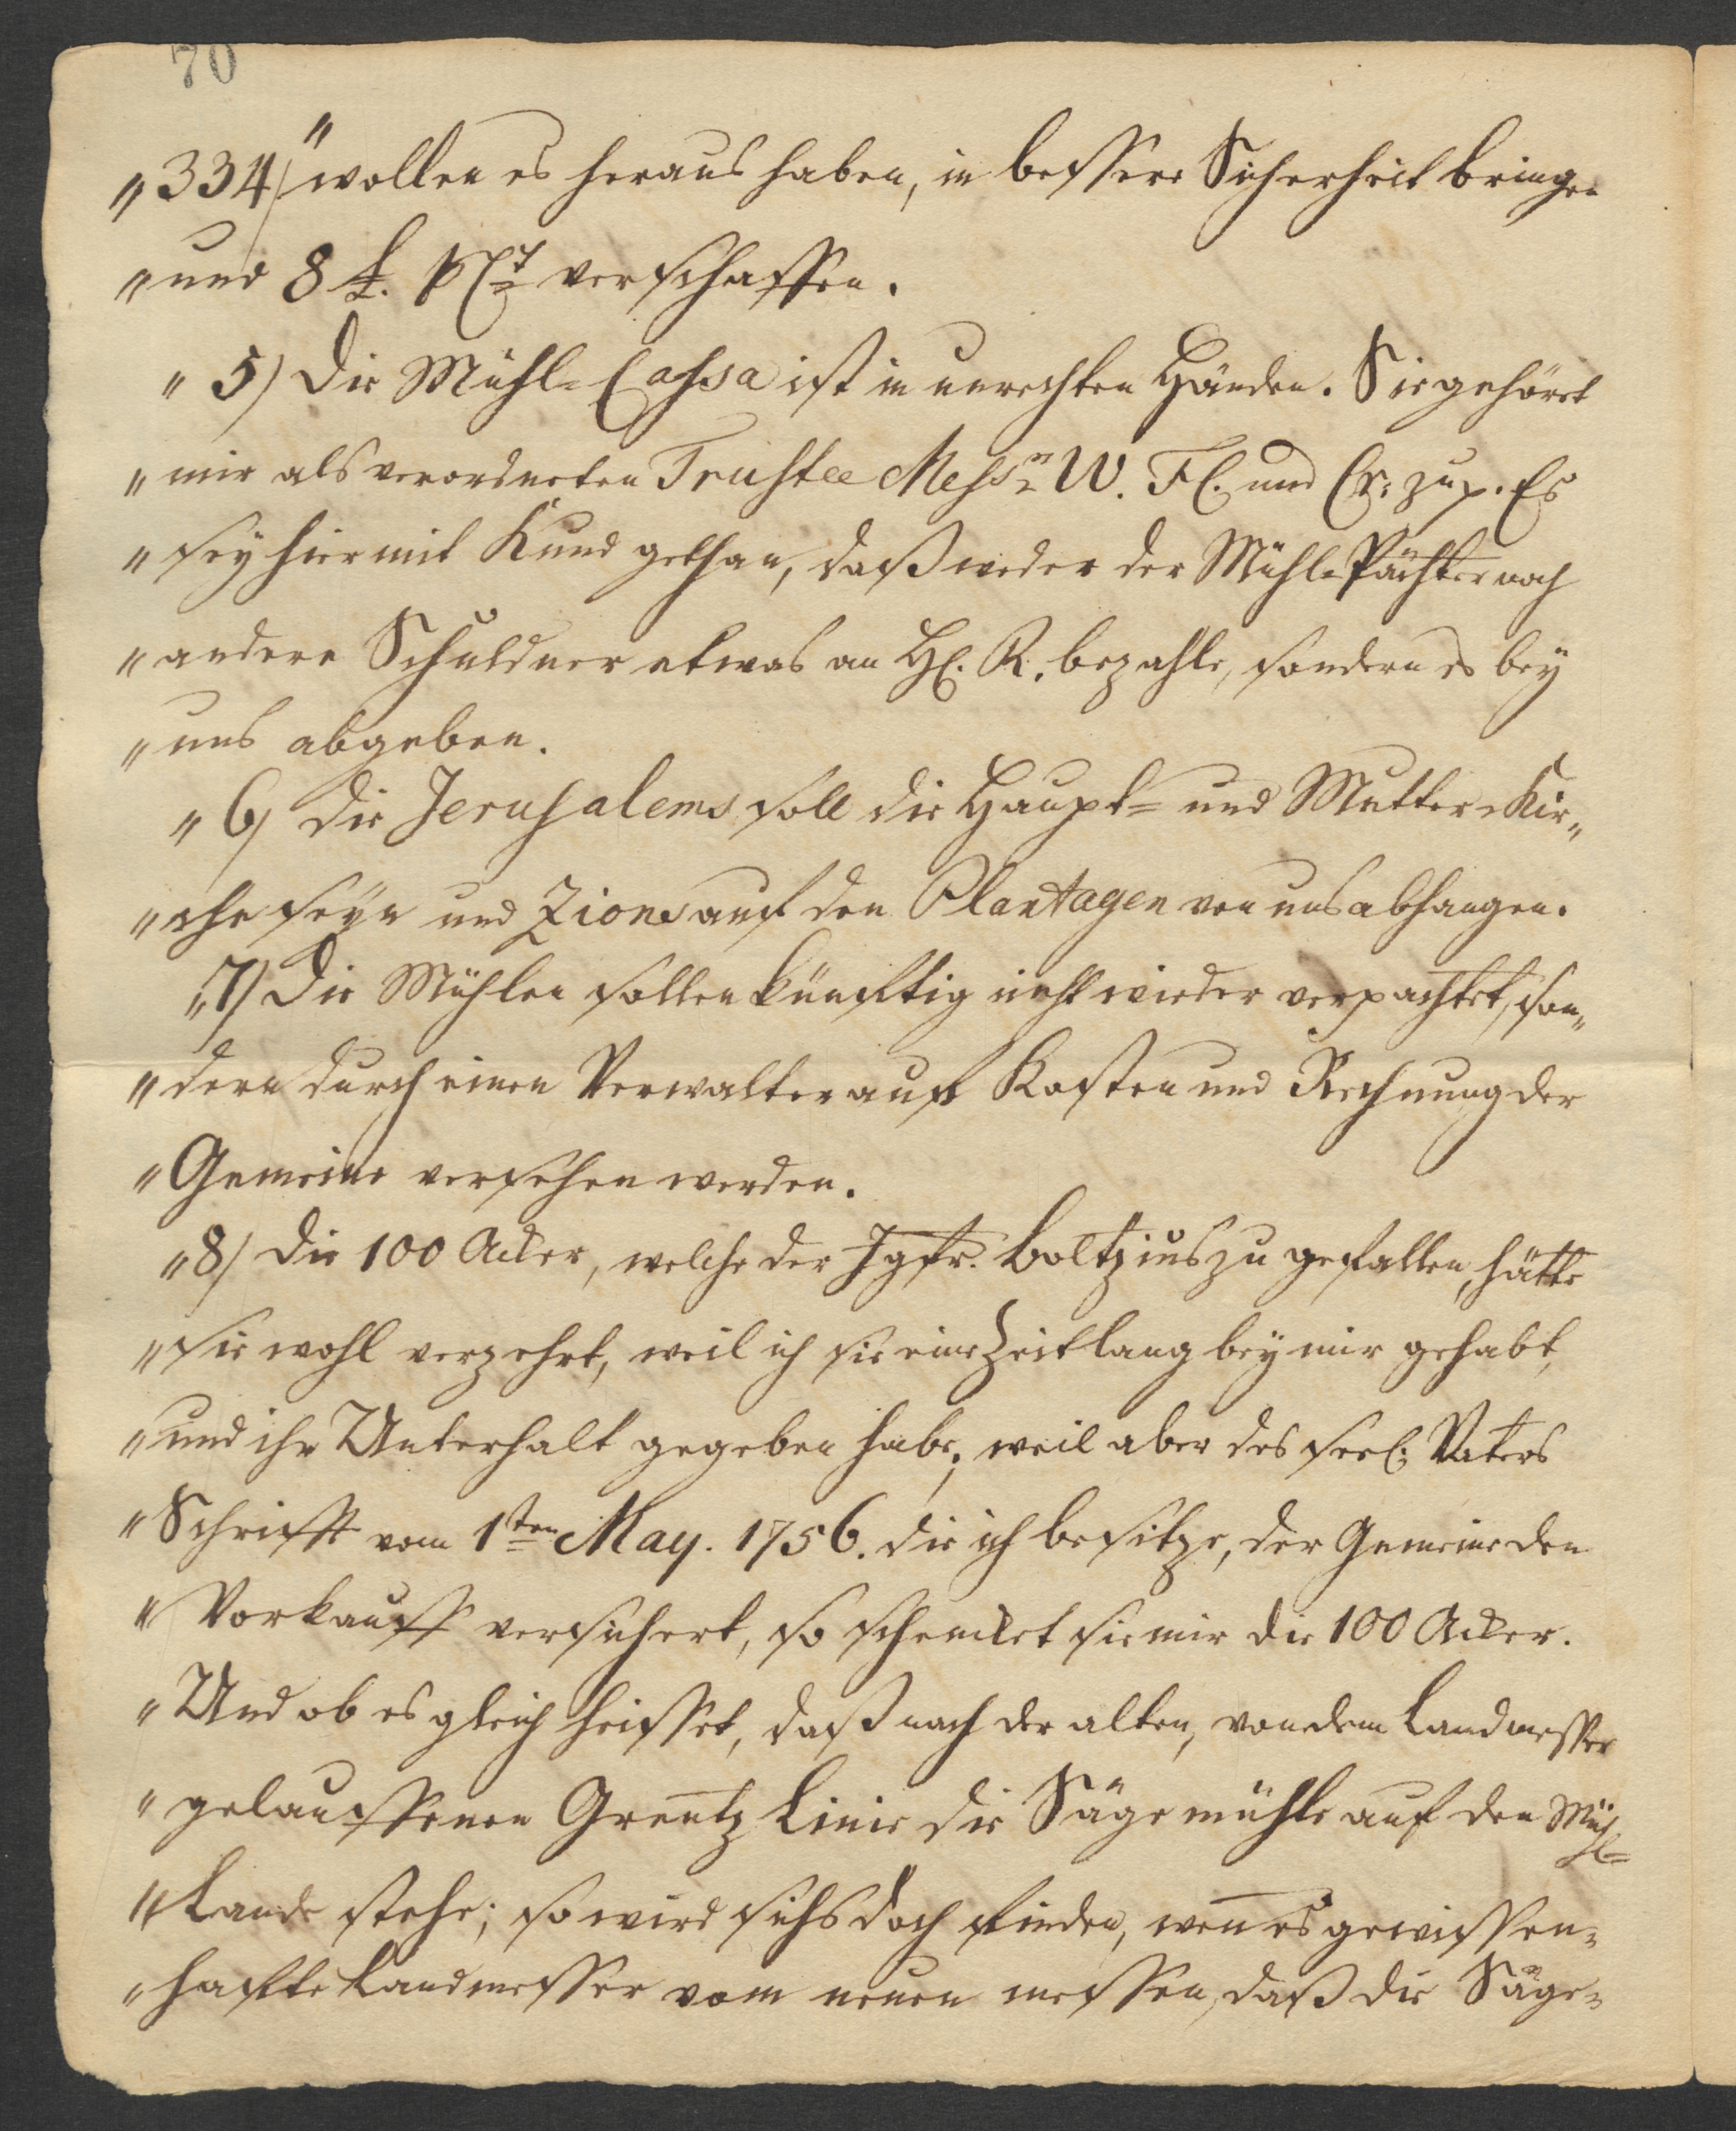 70
„334/ "wollen es heraus haben, in bessere Sicherheit bringen
„und 8 £. pCt verschaffen.
„5) Die Mühl-Cassa ist in unrechten Händen. Sie gehöret
„mir als verordneten Trustee Messrs W. Fl. und Cr: zu p. Es
„sey hiermit Kund gethan, daß weder der Mühl-Pächter noch
„andere Schuldner etwas an H. R. bezahle, sondern es bey
„uns abgeben.
„6) Die Jerusalems soll die Haupt- und Mutter-Kir„
„che seyn und Zions auf den Plantagen von uns abhangen.
„7) Die Mühlen sollen künfftig nicht wieder verpachtet, son„
„dern durch einen Verwalter auf Kosten und Rechnung der
„Gemeine versehen werden.
„8) Die 100 Acker, welche der Jgfr. Boltzius zu gefallen, hätte
„sie wohl verzehrt, weil ich sie eine Zeitlang bey mir gehabt,
„und ihr Unterhalt gegeben habe; weil aber des seel. Vaters
„Schrifft vom 1sten May. 1756. die ich besitze, der Gemeine den
„Vorkauff versichert, so schencket sie mir die 100 Acker.
„Und ob es gleich heisset, daß nach der alten, von dem Landmesser
„gelauffenen Grentz Linie die Sägemühle auf den Mühl-
„Lande stehe; so wird sichs doch finden, wen̅ es gewissen-
„haffte Landmesser vom neuen messen, daß die Säge-